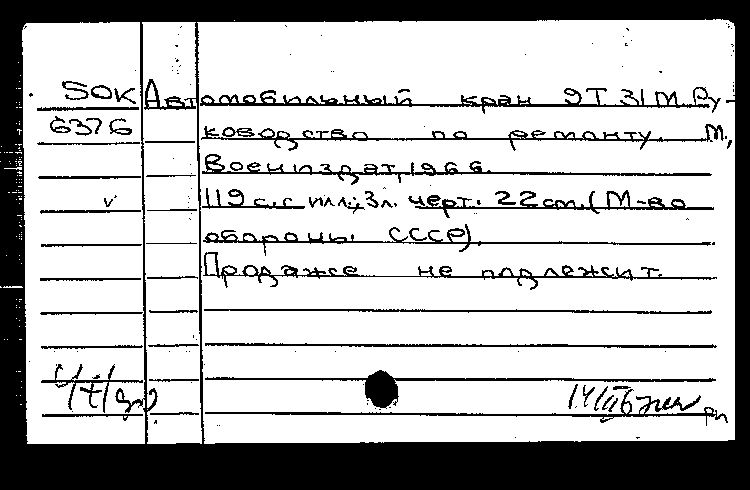 SOK Автомобильный кран 9Т 31М. Ру-
6376 ководство по ремонту. М.,
Воениздат, 1966.
v 119 с. с илл.; 3л. черт. 22 см. (М-во
обороны СССР).
Продаже не подлежит.